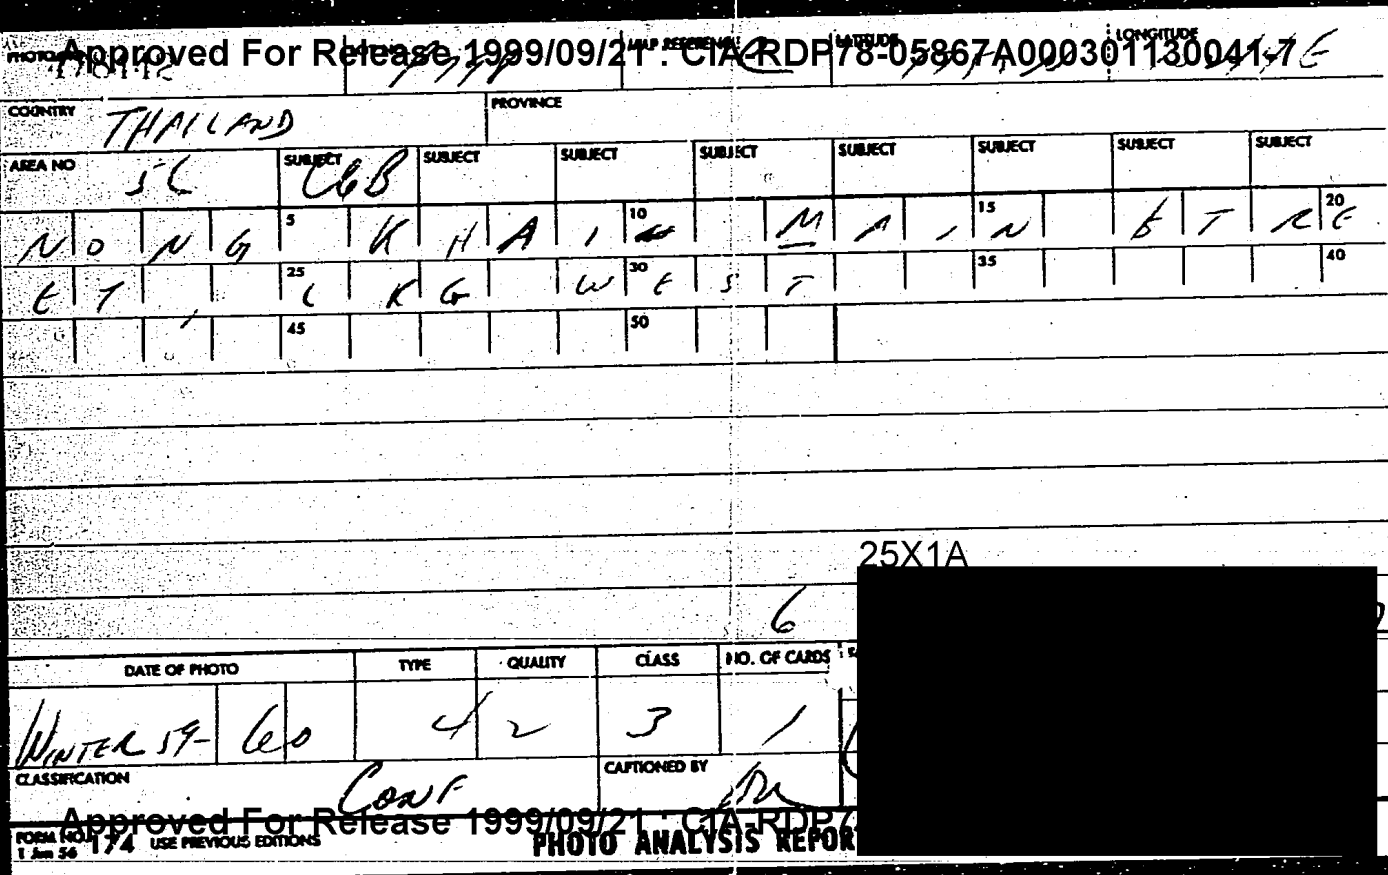 Approved For Release 1999/09/21 : CIA-RDP78-05867A000301130041-7
MAP REFERENCE LATITUDE LONGITUDE
COUNTRY THAILAND PROVINCE
AREA NO 5C SUBJECT C6B SUBJECT SUBJECT SUBJECT SUBJECT SUBJECT SUBJECT SUBJECT
NONG 5 KHAI 10 MAIN 15 STREE 20
ET, 25 LKG WEST 30 35 40
45 50
25X1A
6
DATE OF PHOTO TYPE QUALITY CLASS NO. OF CARDS
WINTER 59-60 4 2 3 1
CLASSIFICATION CONF CAPTIONED BY
Approved For Release 1999/09/21 : CIA-RDP7
FORM NO. 174 USE PREVIOUS EDITIONS PHOTO ANALYSIS REPOR
1 Jun 56